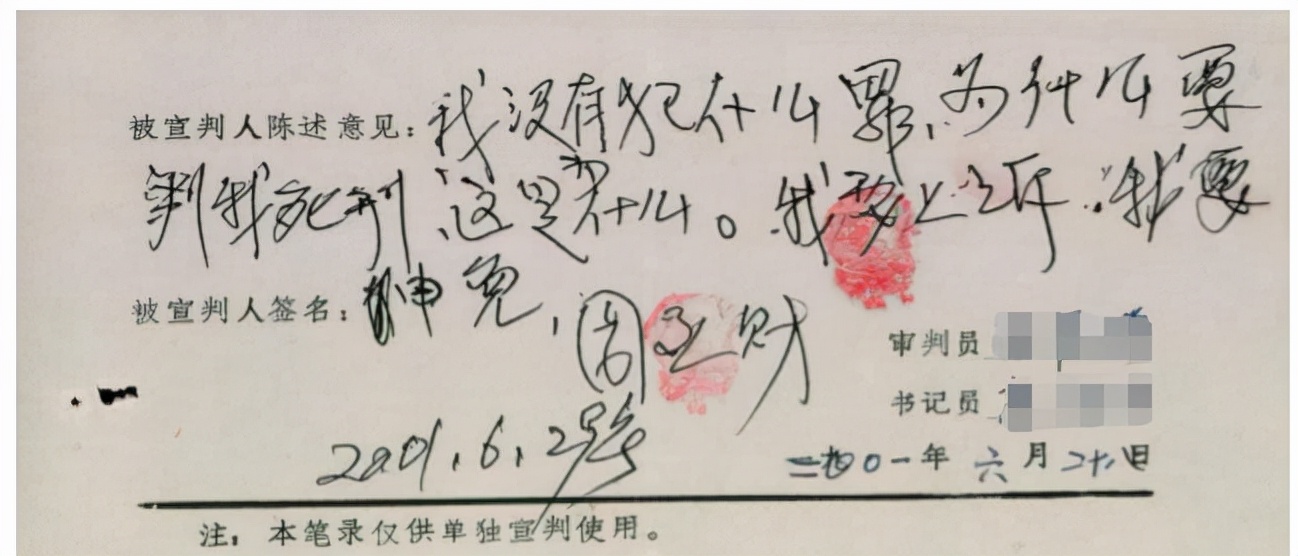 被宣判人陈述意见：我没有犯什么罪，为什么要
判我死刑，这是为什么。我要上诉，我要
被宣判人签名：申冤，周正财
审判员
书记员
2001.6.2号
二〇〇一年六月二十八日
注：本笔录仅供单独宣判使用。